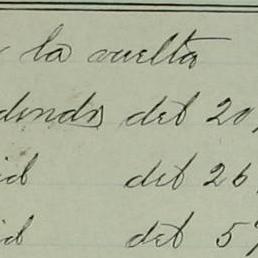 la vuelta
del 20
id del 26
id del 5